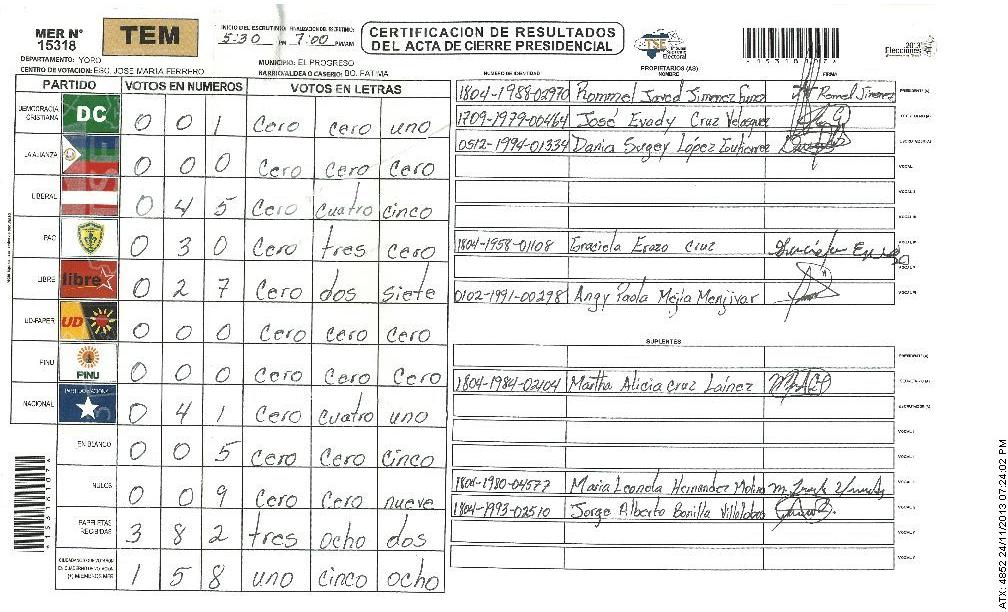 MER N° 15318
TEM
INICIO DEL ESCRUTINIO: 5:30 PM
FINALIZACION DEL ESCRUTINIO: 7:00 PM/AM
CERTIFICACION DE RESULTADOS
DEL ACTA DE CIERRE PRESIDENCIAL
TSE
Tribunal Supremo Electoral
15318107
2013
Elecciones
DEPARTAMENTO: YORO
MUNICIPIO: EL PROGRESO
CENTRO DE VOTACION: ESC. JOSE MARIA FERRERO
BARRIO/ALDEA O CASERIO: BO. FATIMA
PARTIDO VOTOS EN NUMEROS VOTOS EN LETRAS
DEMOCRACIA CRISTIANA DC 0 0 1 Cero cero uno
LA ALIANZA 0 0 0 Cero Cero Cero
LIBERAL 0 4 5 Cero cuatro cinco
PAC 0 3 0 Cero tres cero
LIBRE libre 0 2 7 Cero dos siete
UD-FAPER UD 0 0 0 Cero Cero Cero
PINU PINU 0 0 0 Cero Cero Cero
NACIONAL PARTIDO NACIONAL 0 4 1 Cero cuatro uno
EN BLANCO 0 0 5 Cero Cero Cinco
NULOS 0 0 9 Cero Cero nueve
PAPELETAS RECIBIDAS 3 8 2 tres ocho dos
CIUDADANOS QUE VOTARON EN CUADERNO DE VOTACION (+) MIEMBROS MER 1 5 8 uno cinco ocho
PROPIETARIOS (AS)
NUMERO DE IDENTIDAD NOMBRE FIRMA
1804-1988-02970 Rommel Javed Jimenez Funez Romel Jimenez PRESIDENTE (A)
1709-1979-00464 José Evady Cruz Velasquez SECRETARIO (A)
0512-1994-01334 Dania Sugey López Gutierrez ESCRUTADOR (A)
VOCAL I
VOCAL II
VOCAL III
1804-1958-01108 Graciela Erazo Cruz VOCAL IV
VOCAL V
0102-1991-00298 Angy Paola Mejia Menjivar VOCAL VI
SUPLENTES
PRESIDENTE (A)
1804-1984-02404 Martha Alicia Cruz Laínez SECRETARIO (A)
ESCRUTADOR (A)
VOCAL I
VOCAL II
1804-1980-04577 Maria Leonela Hernandez Molina VOCAL III
1804-1993-02510 Jorge Alberto Bonilla Villalobos VOCAL IV
VOCAL V
VOCAL VI
15316107
ATX: 4852 24/11/2013 07:24:02 PM